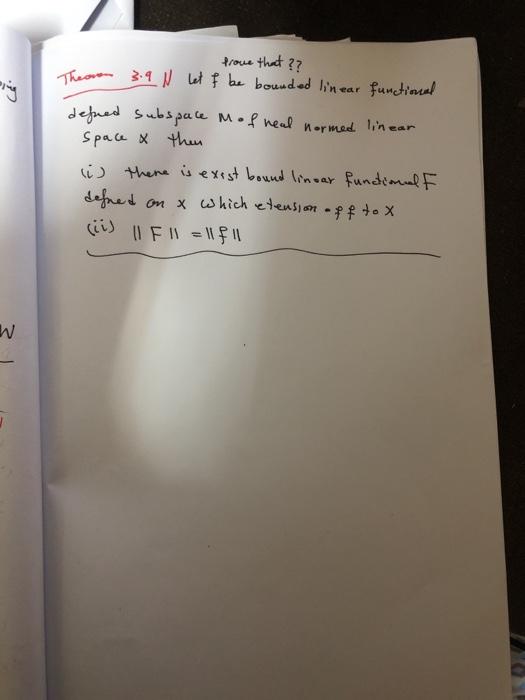 prove that ??
Theorem 3.9 Let f be bounded linear functional
defined subspace M of real normed linear
space X then
(i) there is exist bound linear functional F
defined on X which etension of f to X
(ii) ||F|| = ||f||
W